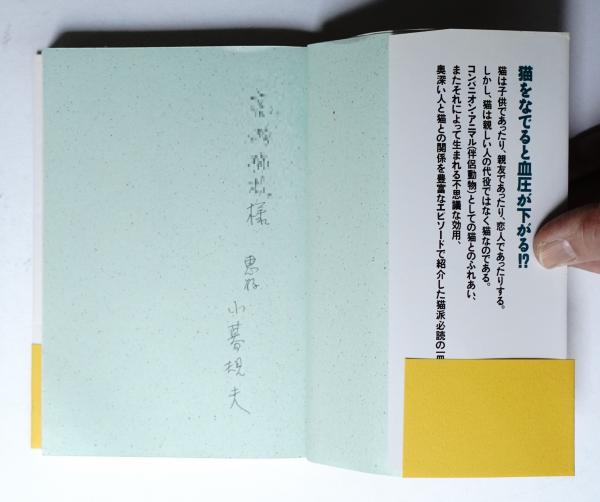 猫をなでると血圧が下がる!?
猫は子供であったり、親友であったり、恋人であったりする。
しかし、猫は親しい人の代役ではなく猫なのである。
コンパニオン・アニマル(伴侶動物)としての猫とのふれあい、
またそれによって生まれる不思議な効用、
奥深い人と猫との関係を豊富なエピソードで紹介した猫派必読の一冊
様
恵存
小暮規夫